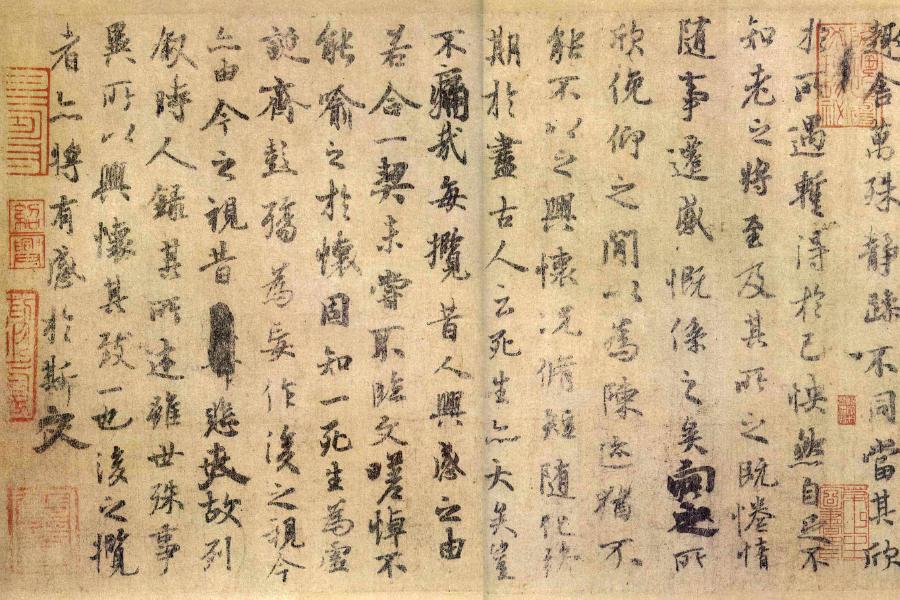 趣舍萬殊静躁不同當其欣
於所遇暫得於己怏然自足不
知老之將至及其所之既惓情
随事遷感慨係之矣向之所
欣俛仰之閒以為陳迹猶不
能不以之興懷況脩短随化終
期於盡古人云死生亦大矣豈
不痛哉每攬昔人興感之由
若合一契未嘗不臨文嗟悼不
能喻之於懷固知一死生為虛
誕齊彭殤為妄作後之視今
亦由今之視昔悲夫故列
叙時人録其所述雖世殊事
異所以興懷其致一也後之攬
者亦將有感於斯文
紹興